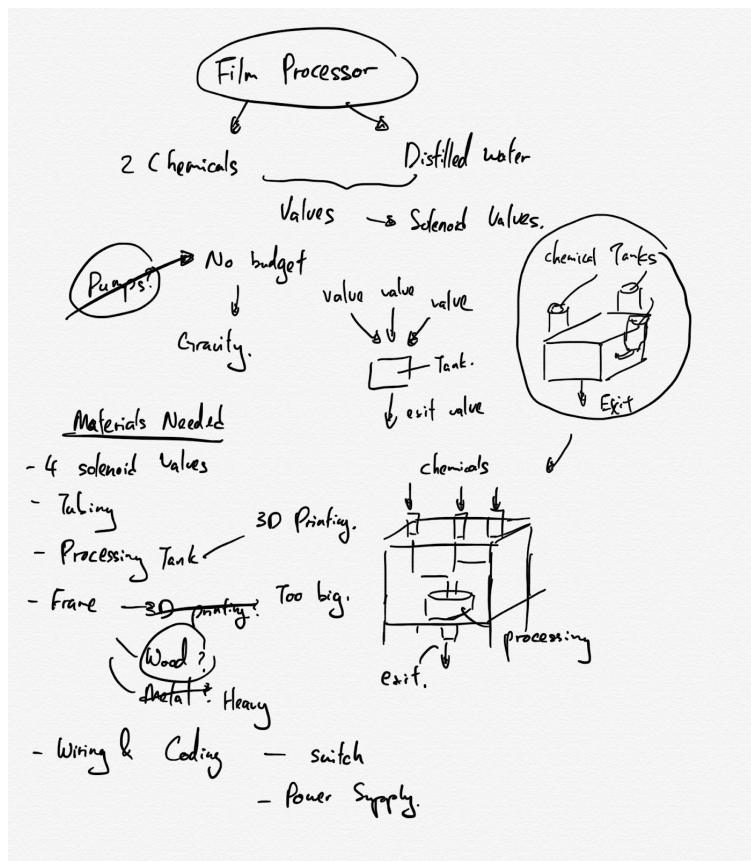 Film Processor
2 Chemicals
Distilled water
Valves → Solenoid Valves.
Pumps? → No budget
Gravity.
chemical Tanks
Exit
valve valve valve
Tank.
exit valve
Materials Needed
- 4 solenoid Valves
- Tubing
- Processing Tank
3D Printing.
- Frame - 3D printing? Too big.
Wood?
Metal? Heavy
- Wiring & Coding - switch
- Power Supply.
chemicals
processing
exit.